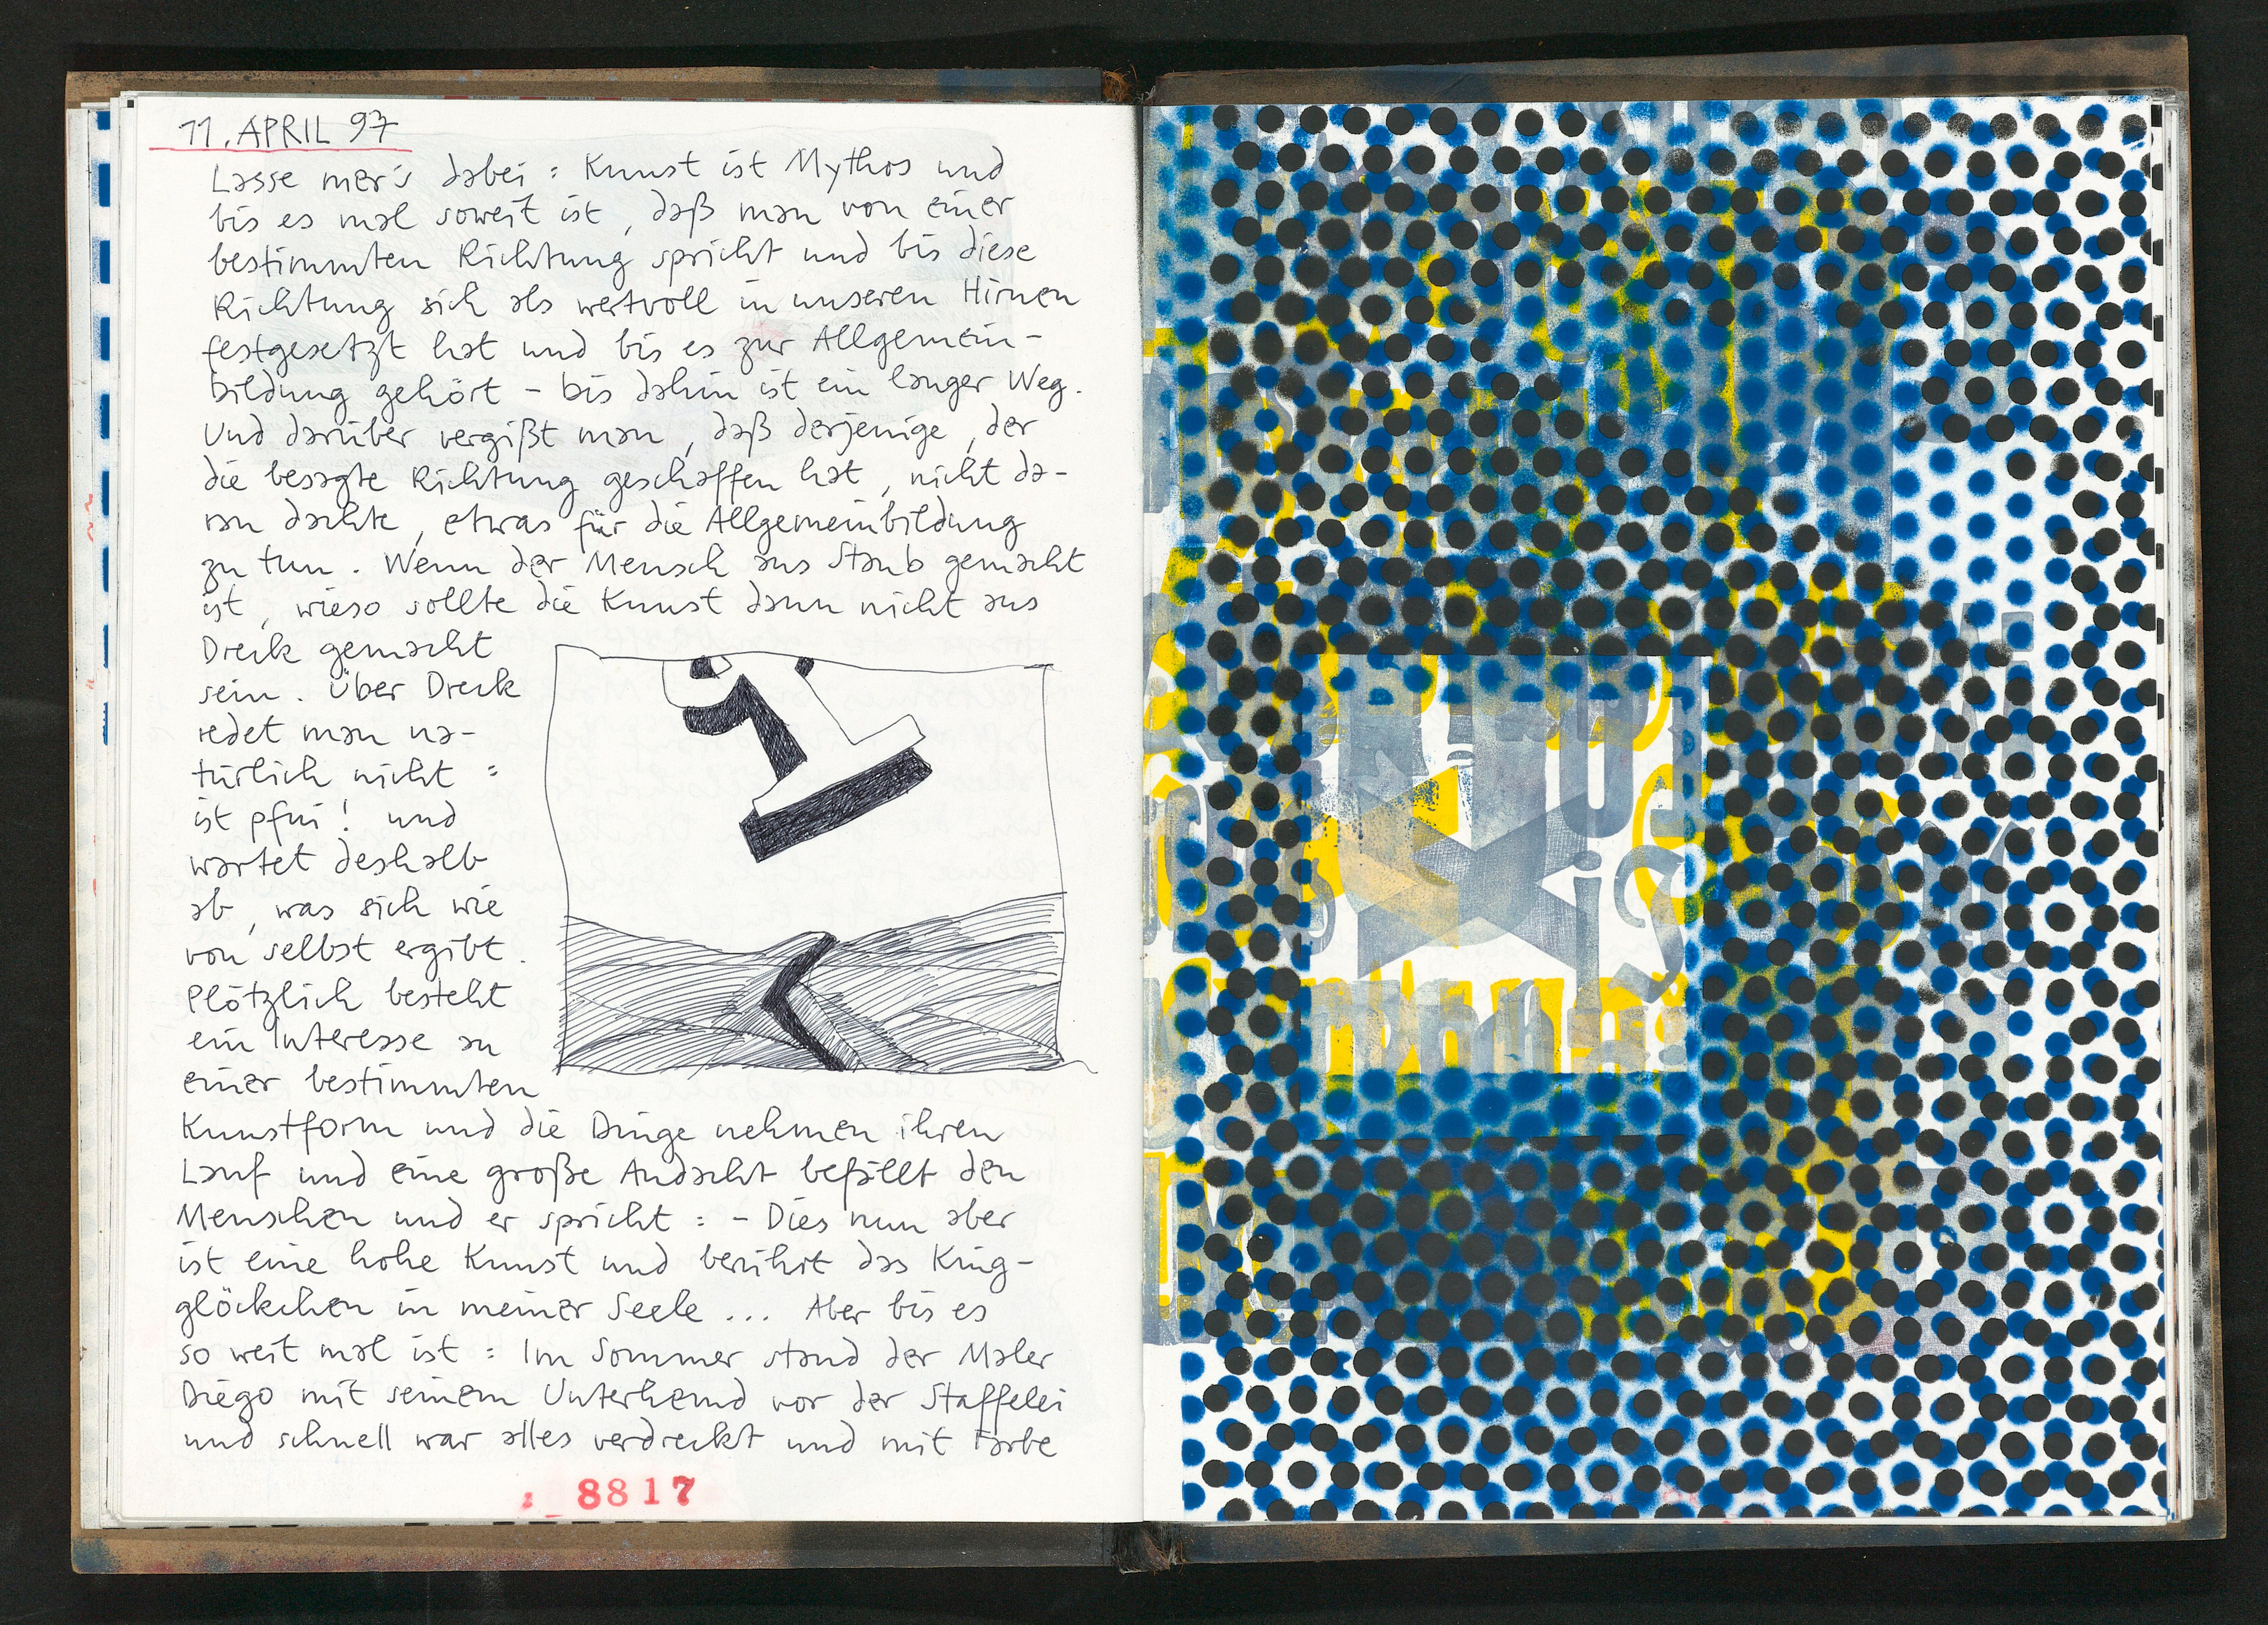 11. APRIL 97
Lasse mer's dabei : Kunst ist Mythos und
bis es mal soweit ist, daß man von einer
bestimmten Richtung spricht und bis diese
Richtung sich als wertvoll in unseren Hirnen
festgesetzt hat und bis es zur Allgemein-
bildung gehört – bis dahin ist ein langer Weg.
Und darüber vergißt man, daß derjenige, der
die besagte Richtung geschaffen hat, nicht da-
ran dachte, etwas für die Allgemeinbildung
zu tun. Wenn der Mensch aus Staub gemacht
ist, wieso sollte die Kunst dann nicht aus
Dreck gemacht
sein. Über Dreck
redet man na-
türlich nicht :
ist pfui! und
wartet deshalb
ab, was sich wie
von selbst ergibt.
Plötzlich besteht
ein Interesse an
einer bestimmten
Kunstform und die Dinge nehmen ihren
Lauf und eine große Andacht befällt den
Menschen und er spricht : – Dies nun aber
ist eine hohe Kunst und berührt das Kling-
glöckchen in meiner Seele ... Aber bis es
so weit mal ist : Im Sommer stand der Maler
Diego mit seinem Unterhemd vor der Staffelei
und schnell war alles verdreckt und mit Farbe
8817
iS